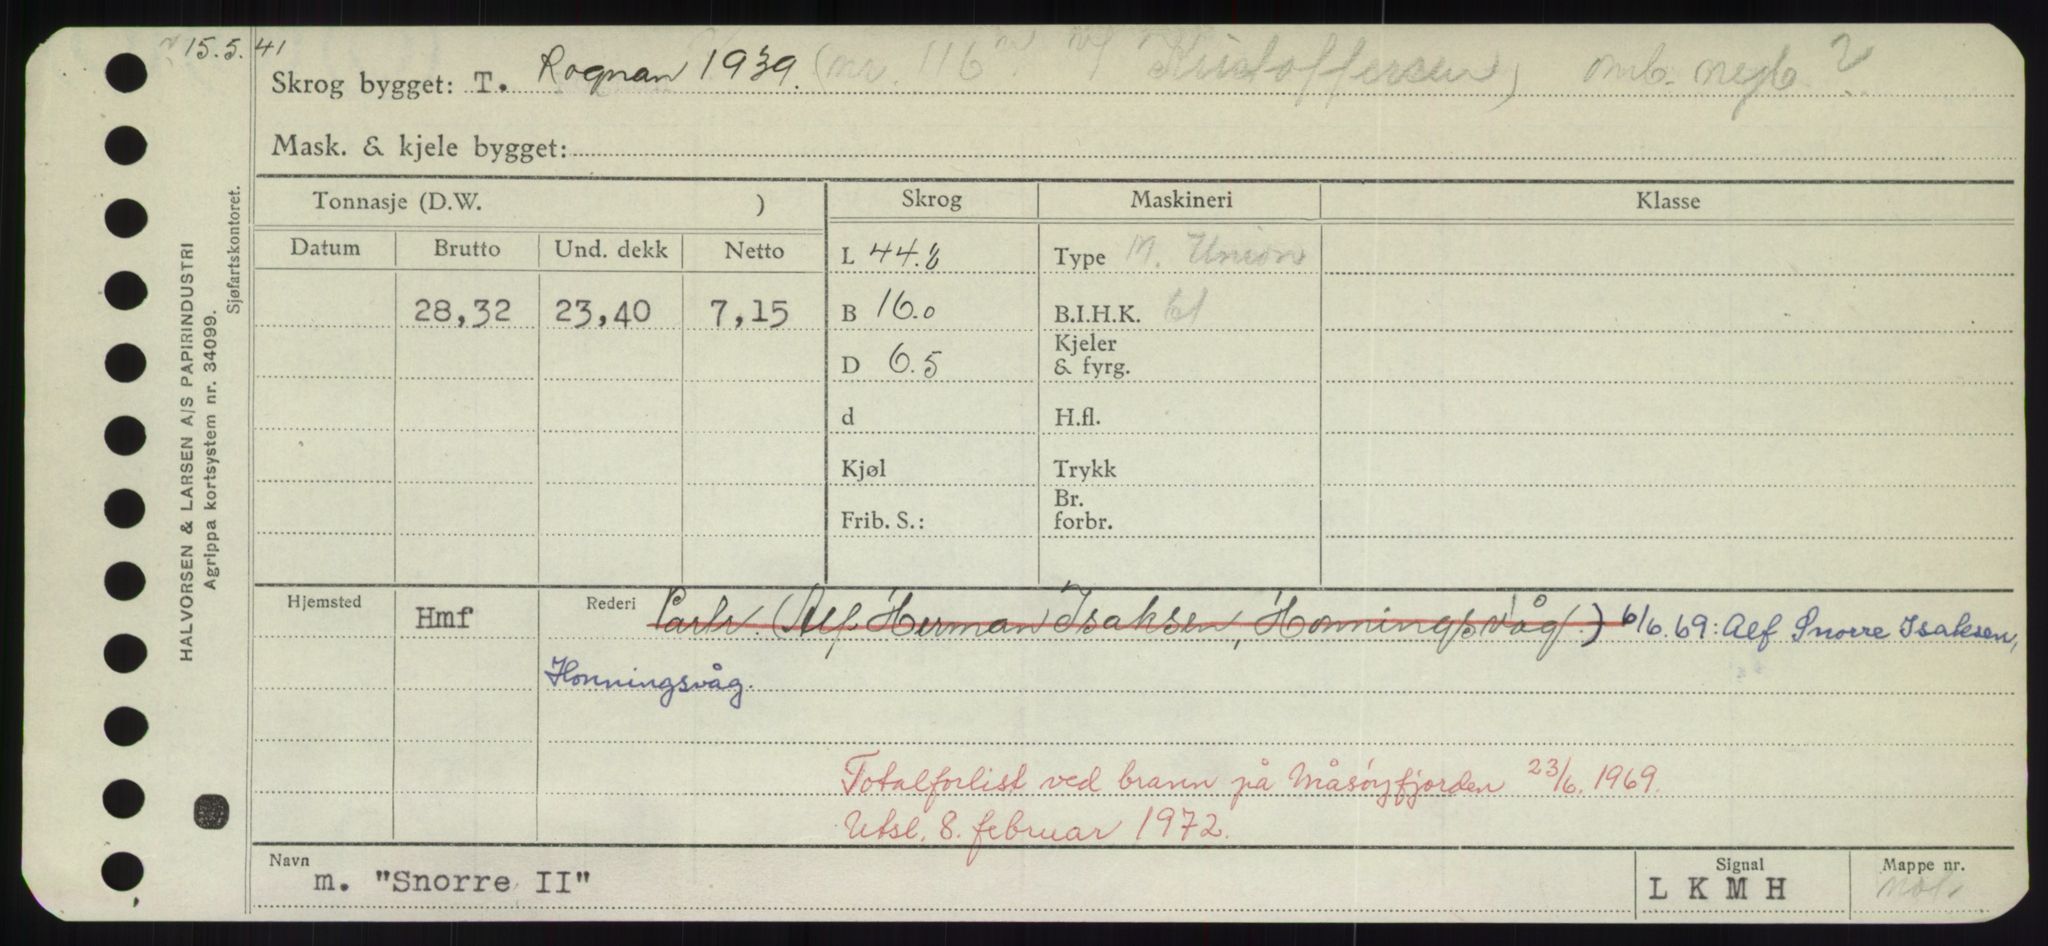 15.5.41
Skrog bygget: T. Rognan 1939. (nr. 116 Kristoffersen) ?
Mask. & kjele bygget:
Tonnasje (D.W. ) Skrog Maskineri Klasse
Datum Brutto Und. dekk Netto L 44.8 Type M. Union
28,32 23,40 7,15 B 16.0 B.I.H.K. 61
D 6.5 Kjeler & fyrg.
d H.fl.
Kjøl Trykk
Frib. S.: Br. forbr.
Hjemsted Hmf Rederi Partr. (Alf Herman Isaksen, Honningsvåg.) 6/6.69: Alf Snorre Isaksen,
Honningsvåg.
Totalforlist ved brann på Måsøyfjorden 23/6. 1969.
Utsl. 8. februar 1972.
Navn Signal Mappe nr.
m. "Snorre II" L K M H
HALVORSEN & LARSEN A/S PAPIRINDUSTRI
Agrippa kortsystem nr. 34099.
Sjøfartskontoret.